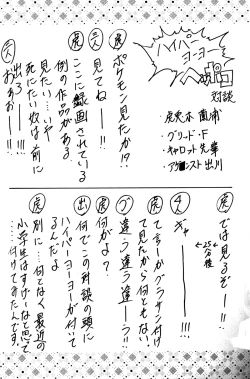 ハイパーヨーヨー
ヘッポコ
対談
・グリッド・F
・キャロット先輩
・アクロニスト出川
虎 ポケモン見たか!?
三人 見てねーー!!
虎 ここに録画されている
例の作品がある。
見たい…いや
死にたい奴は前に
出ろーー!!
三人 おぉおーー!!!
虎 では見るぞ!!
←25分後
4人 ギャーーー!!!
虎 てるーかグラサン付け
て見たから何ともない
グ 違う違う違うーう!!
虎 何がよ?
出 何でこの対談の頭に
ハイパーヨーヨーが付いて
るんだよ
虎 別に…何となく最近の
小学生はすげーなと思って
…付けてみたんです。